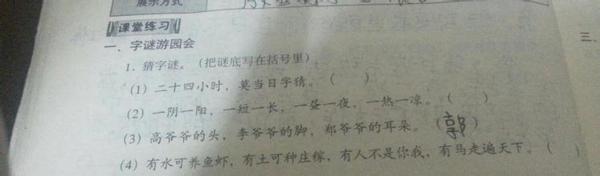 展示方式
课堂练习
一、字谜游园会
1. 猜字谜。(把谜底写在括号里)
(1) 二十四小时,莫当日字猜。( )
(2) 一阴一阳,一短一长,一昼一夜,一热一凉。( )
(3) 高爷爷的头,李爷爷的脚,郑爷爷的耳朵。(郭)
(4) 有水可养鱼虾,有土可种庄稼,有人不是你我,有马走遍天下。(
三、